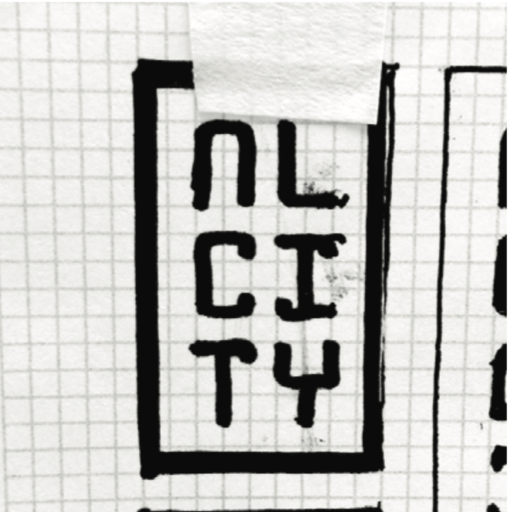 NL
CI
TY